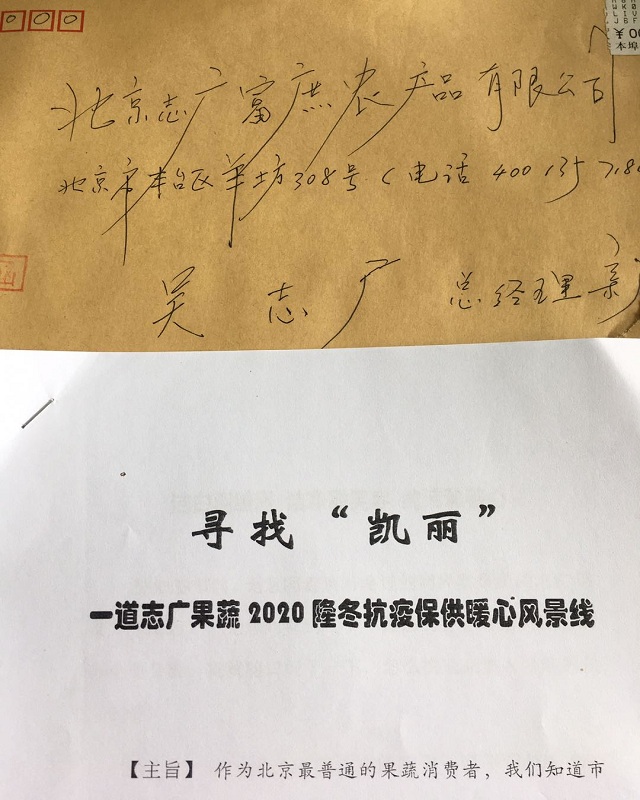 ¥00
本埠
北京志广富庶农产品有限公司
北京市丰台区羊坊308号（电话 400 135
吴志广 总经理 亲
寻找“凯丽”
一道志广果蔬2020隆冬抗疫保供暖心风景线
【主旨】 作为北京最普通的果蔬消费者，我们知道市